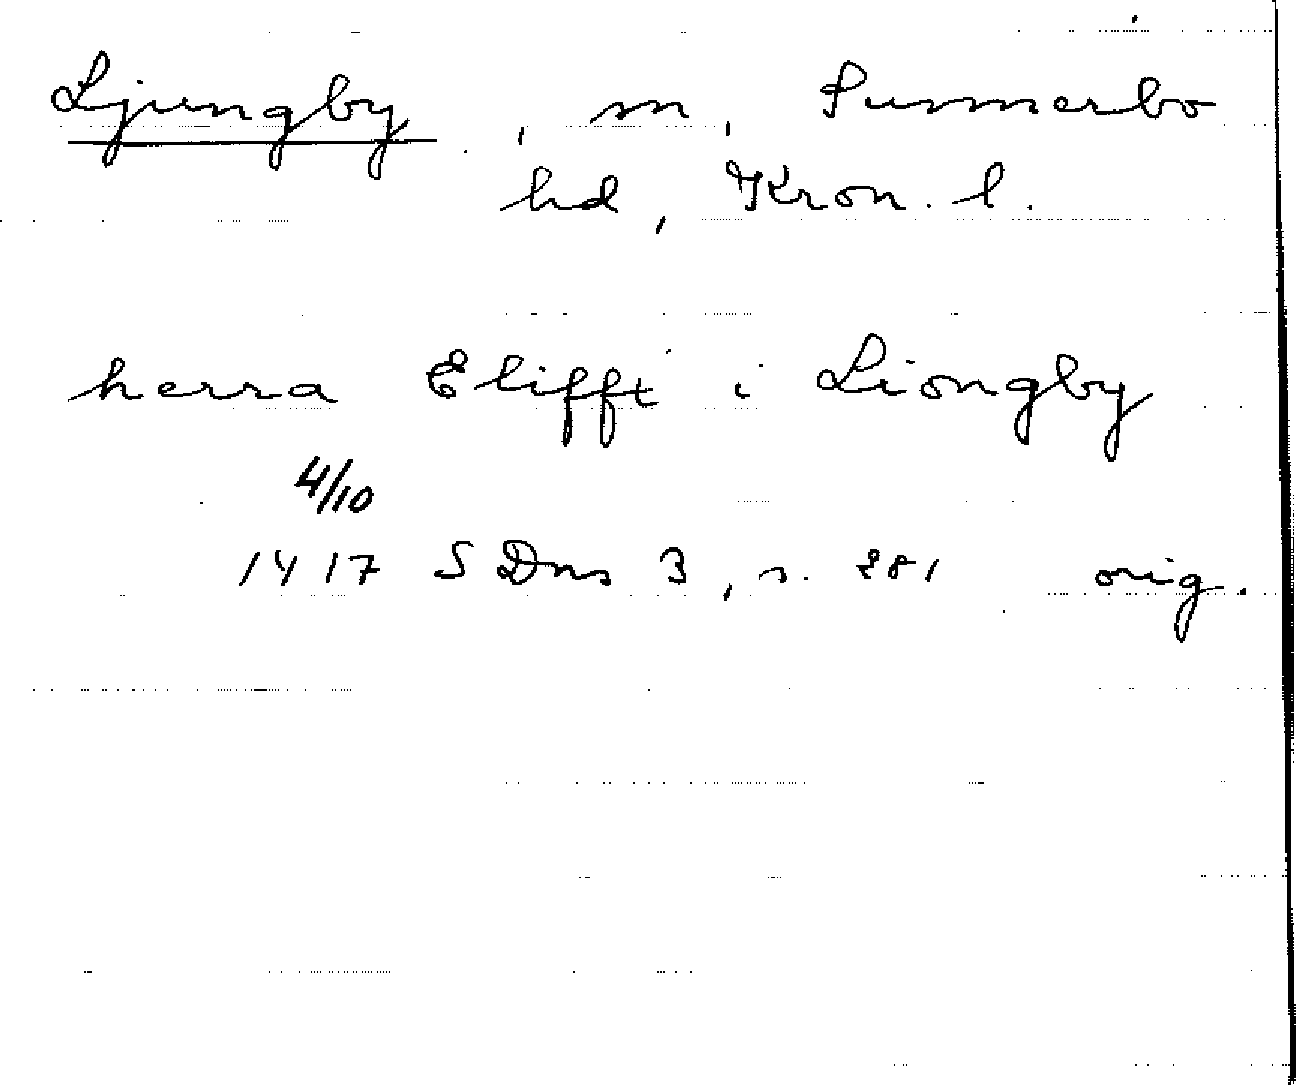 Ljungby, sn, Sunnerbo
hd, Kron. l.
herra Elifft i Liongby
4/10
1417 SDns 3, s. 281 orig.